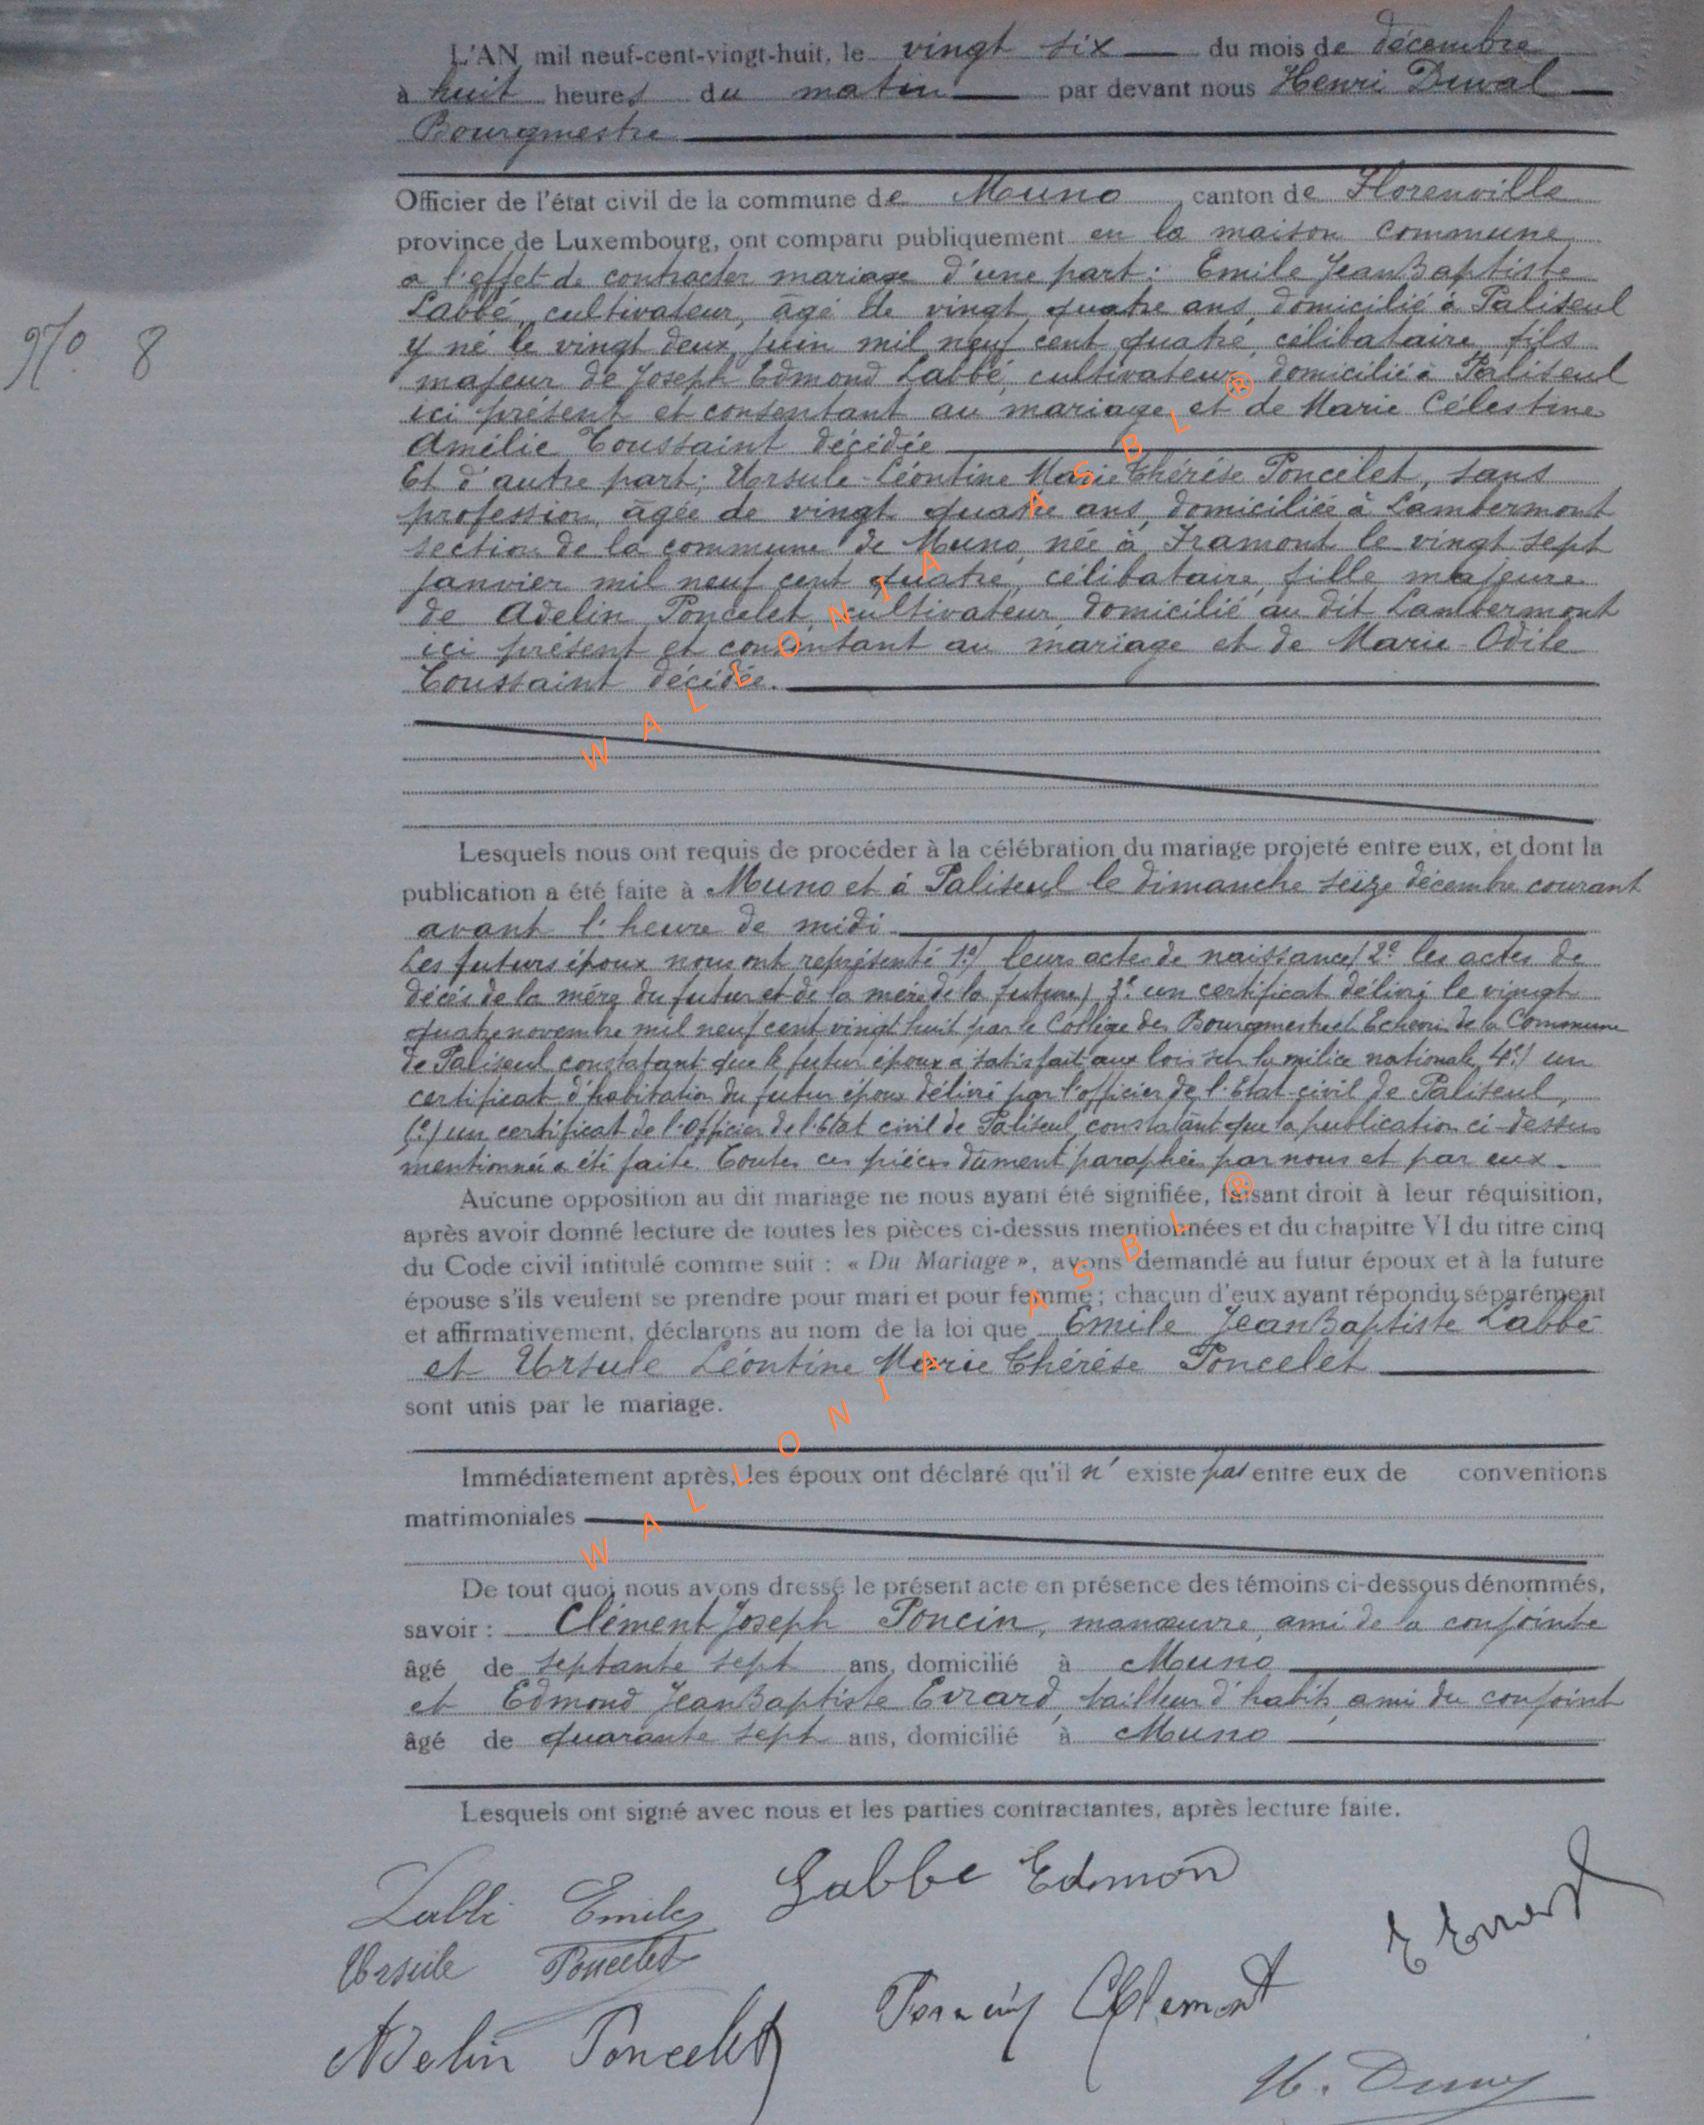 L'AN mil neuf-cent-vingt-huit, le vingt six du mois de décembre
à huit heures du matin par devant nous Henri Duval
Bourgmestre
Officier de l'état civil de la commune de Muno canton de Florenville
province de Luxembourg, ont comparu publiquement en la maison commune
a l'effet de contracter mariage d'une part: Emile Jean Baptiste
N° 8
Labbé, cultivateur, âgé de vingt quatre ans, domicilié à Paliseul
y né le vingt deux juin mil neuf cent quatre, célibataire, fils
majeur de Joseph Edmond Labbé, cultivateur, domicilié à Paliseul
ici présent et consentant au mariage et de Marie Célestine
Amélie Toussaint décédée
Et d'autre part; Ursule-Léontine Marie Thérèse Poncelet, sans
profession, âgée de vingt quatre ans, domiciliée à Lambermont
section de la commune de Muno, née à Framont le vingt sept
janvier mil neuf cent quatre, célibataire, fille majeure
de Adelin Poncelet, cultivateur, domicilié au dit Lambermont
ici présent et consentant au mariage et de Marie-Odile
Toussaint décédée.
Lesquels nous ont requis de procéder à la célébration du mariage projeté entre eux, et dont la
publication a été faite à Muno et à Paliseul le dimanche seize décembre courant
avant l'heure de midi.
Les futurs époux nous ont représenté 1°) leurs actes de naissance, 2° les actes de
décès de la mère du futur et de la mère de la future, 3° un certificat délivré le vingt
quatre novembre mil neuf cent vingt huit par le Collège des Bourgmestre et Echevins de la Commune
de Paliseul constatant que le futur époux a satisfait aux lois sur la milice nationale, 4°) un
certificat d'habitation du futur époux délivré par l'officier de l'Etat-civil de Paliseul,
5°) un certificat de l'Officier de l'Etat civil de Paliseul, constatant que la publication ci-dessus
mentionnée a été faite. Toutes ces pièces dûment paraphées par nous et par eux.
Aucune opposition au dit mariage ne nous ayant été signifiée, faisant droit à leur réquisition,
après avoir donné lecture de toutes les pièces ci-dessus mentionnées et du chapitre VI du titre cinq
du Code civil intitulé comme suit : « Du Mariage », avons demandé au futur époux et à la future
épouse s'ils veulent se prendre pour mari et pour femme ; chacun d'eux ayant répondu séparément
et affirmativement, déclarons au nom de la loi que Emile Jean Baptiste Labbé
et Ursule Léontine Marie Thérèse Poncelet
sont unis par le mariage.
Immédiatement après, les époux ont déclaré qu'il n' existe pas entre eux de conventions
matrimoniales
De tout quoi nous avons dressé le présent acte en présence des témoins ci-dessous dénommés,
savoir : Clément Joseph Poncin, manœuvre, ami de la conjointe
âgé de septante sept ans, domicilié à Muno
et Edmond Jean Baptiste Evrard, tailleur d'habits, ami du conjoint
âgé de quarante sept ans, domicilié à Muno
Lesquels ont signé avec nous et les parties contractantes, après lecture faite.
Labbé Emile Labbe Edmon
E Evrard
Ursule Poncelet
Poncin Clement
Adelin Poncelet
H. Duval
WALLONIA ASBL ®
WALLONIA ASBL ®